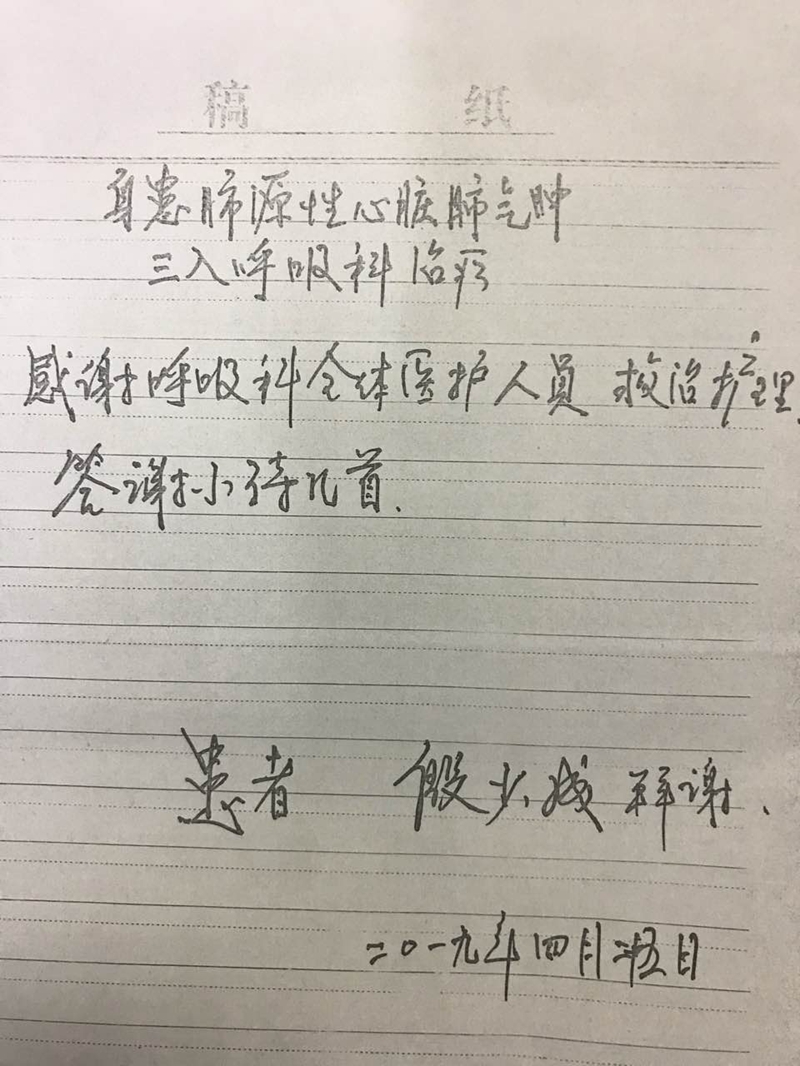 稿 纸
身患肺源性心脏肺气肿
三入呼吸科治疗
感谢呼吸科全体医护人员 救治护理
答谢小诗几首.
患者 段少 拜谢.
二〇一九年四月二五日